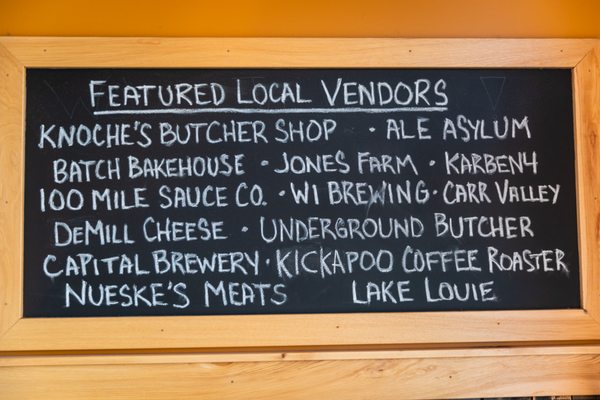 FEATURED LOCAL VENDORS
KNOCHE'S BUTCHER SHOP · ALE ASYLUM
BATCH BAKEHOUSE · JONES FARM · KARBEN4
100 MILE SAUCE CO. · WI BREWING · CARR VALLEY
DEMILL CHEESE · UNDERGROUND BUTCHER
CAPITAL BREWERY · KICKAPOO COFFEE ROASTER
NUESKE'S MEATS LAKE LOUIE